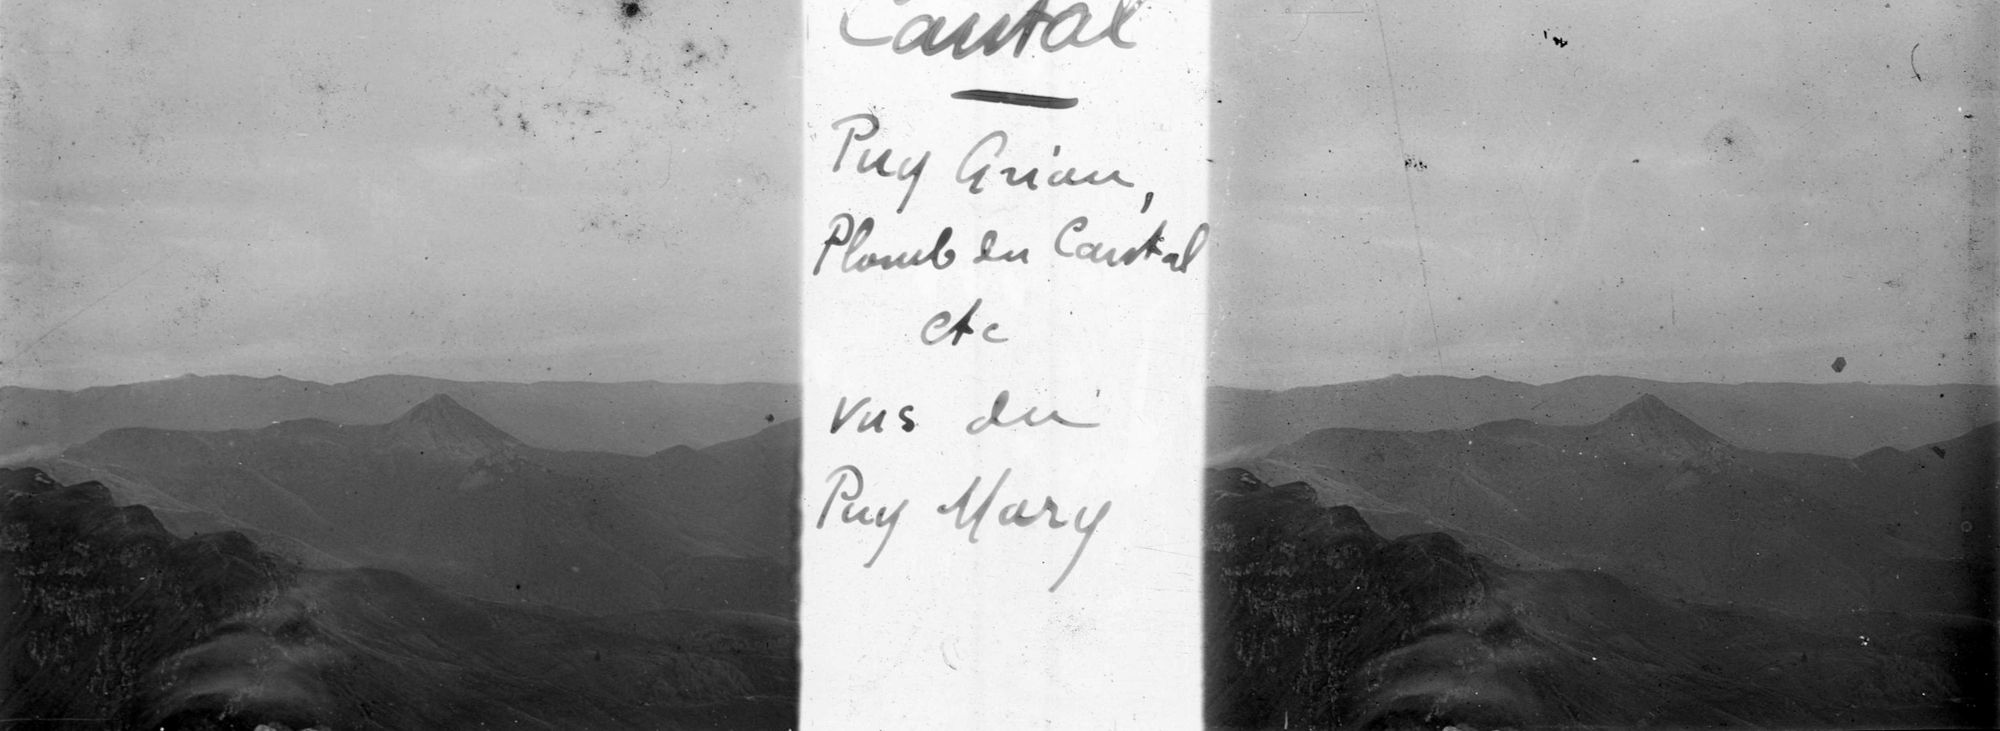 Cantal
Puy Griou,
Plomb du Cantal
etc
vus du
Puy Mary